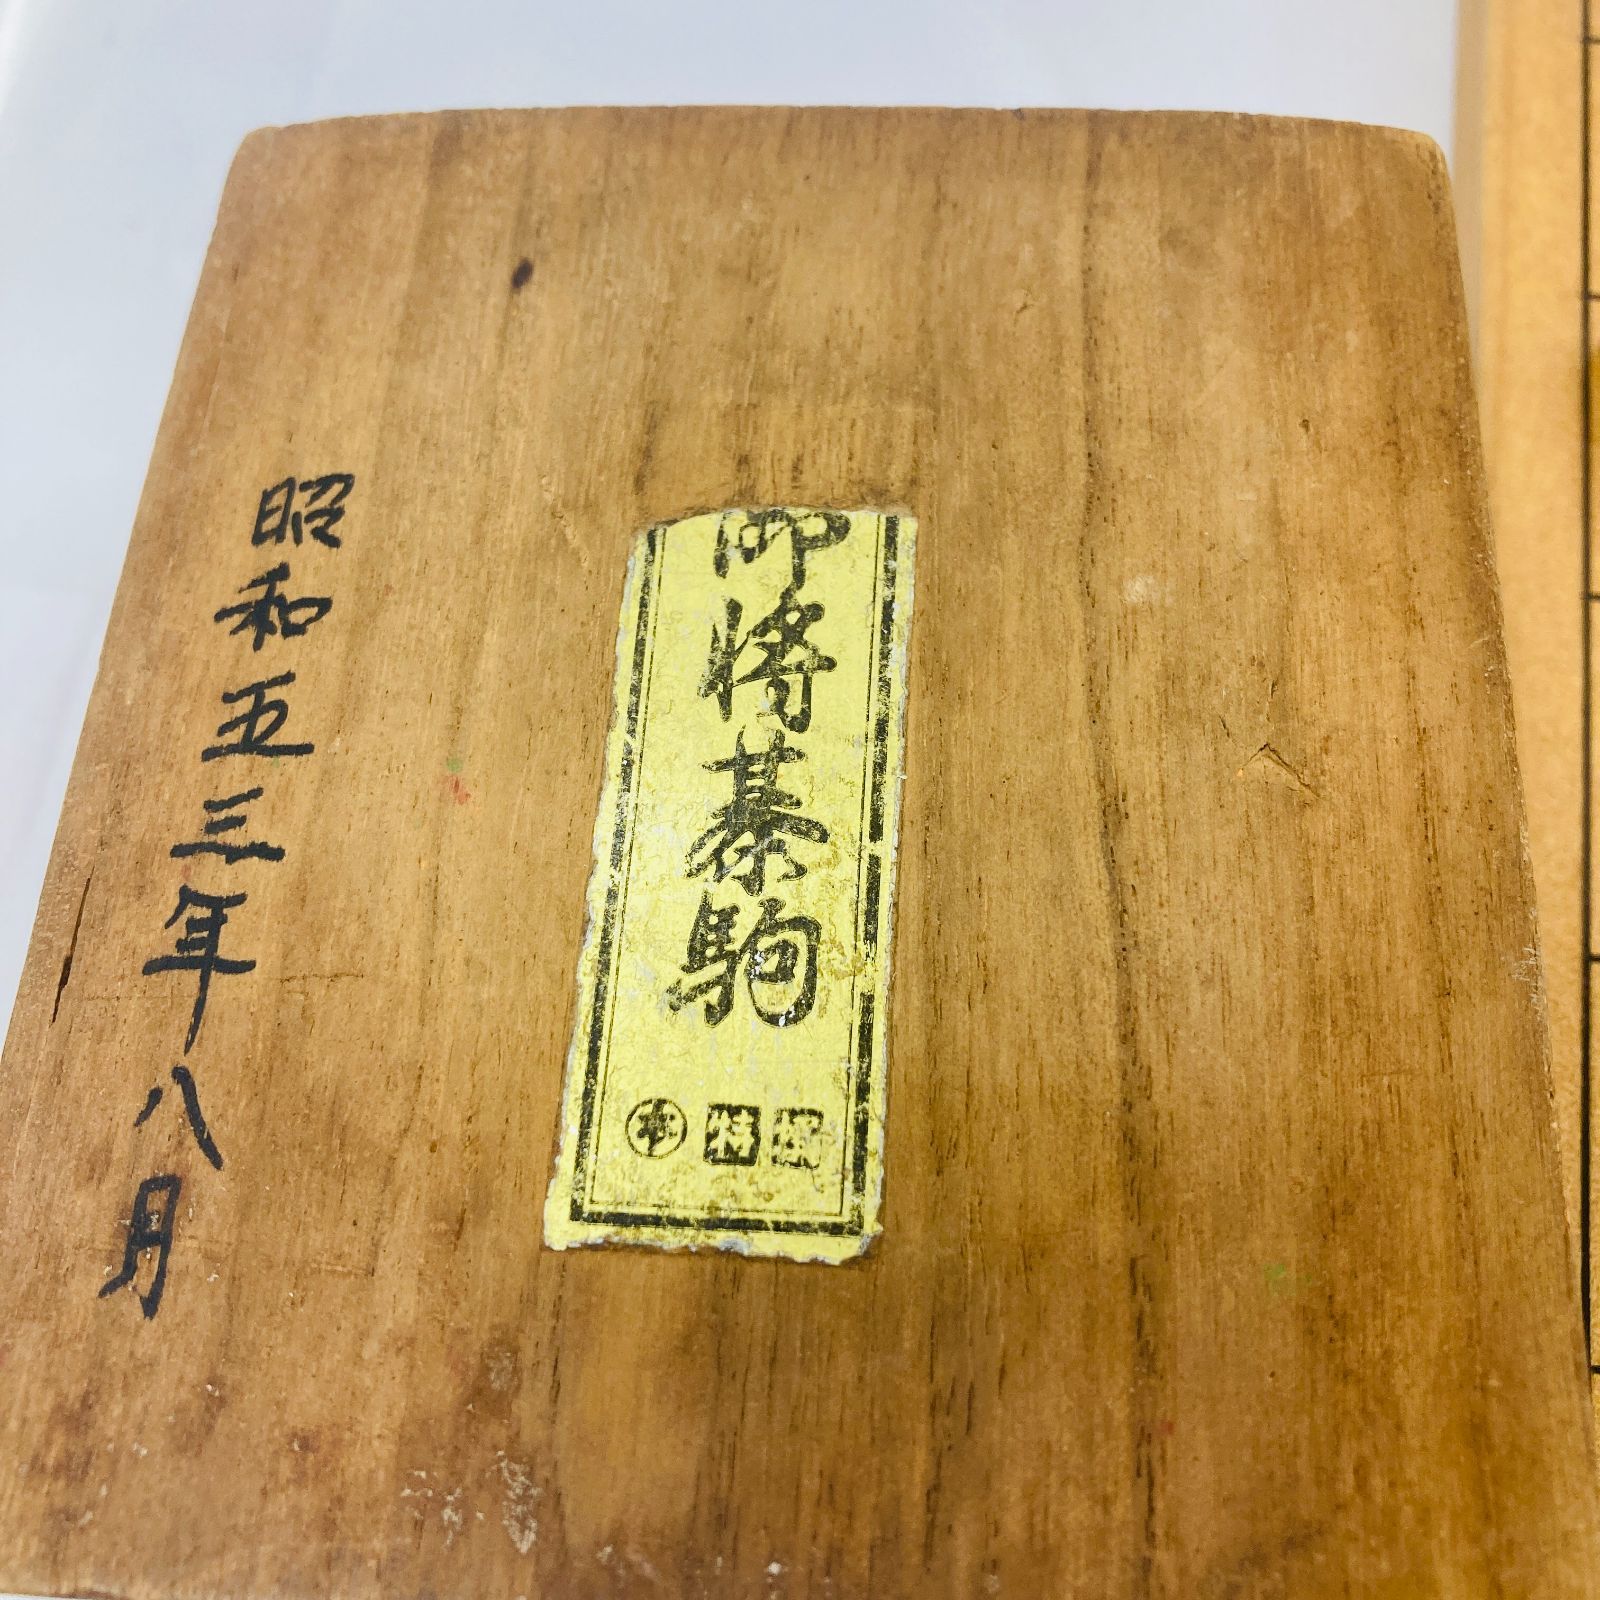 御将棊駒
本 特撰
昭和五三年八月